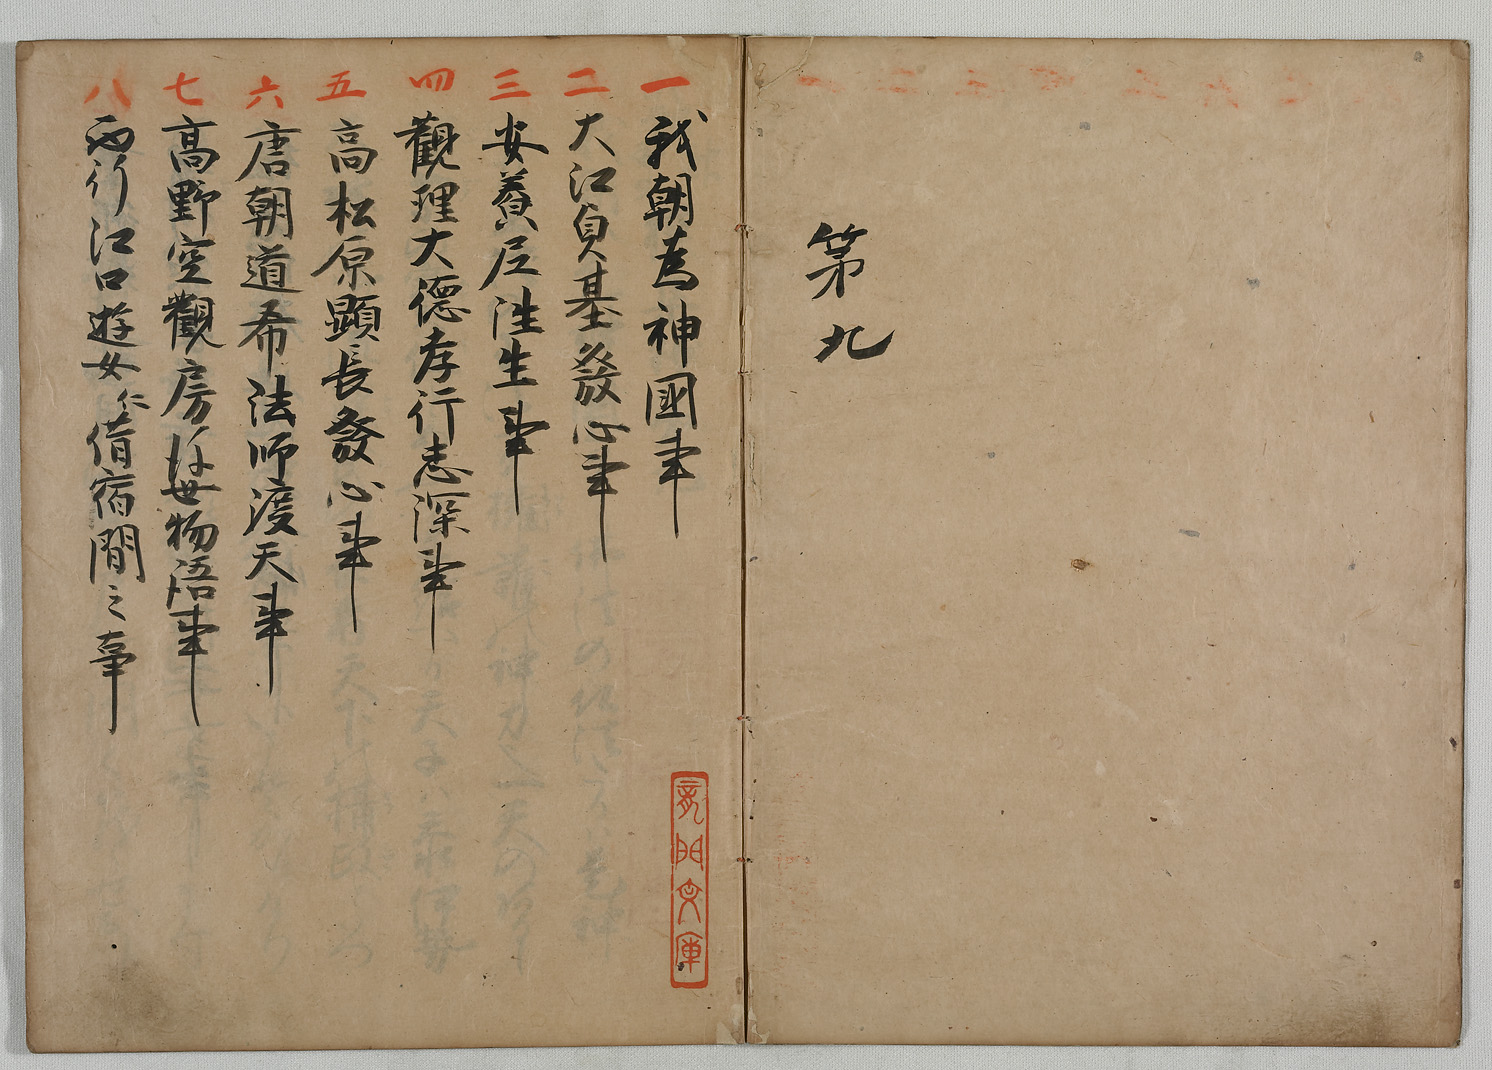 第九
一 我朝為神國事
二 大江貞基發心事
三 安養尼往生事
四 觀理大德孝行志深事
五 高松原顕長發心事
六 唐朝道希法師渡天事
七 高野空觀房後世物語事
八 西行江口遊女仁借宿間之事
龍門文庫